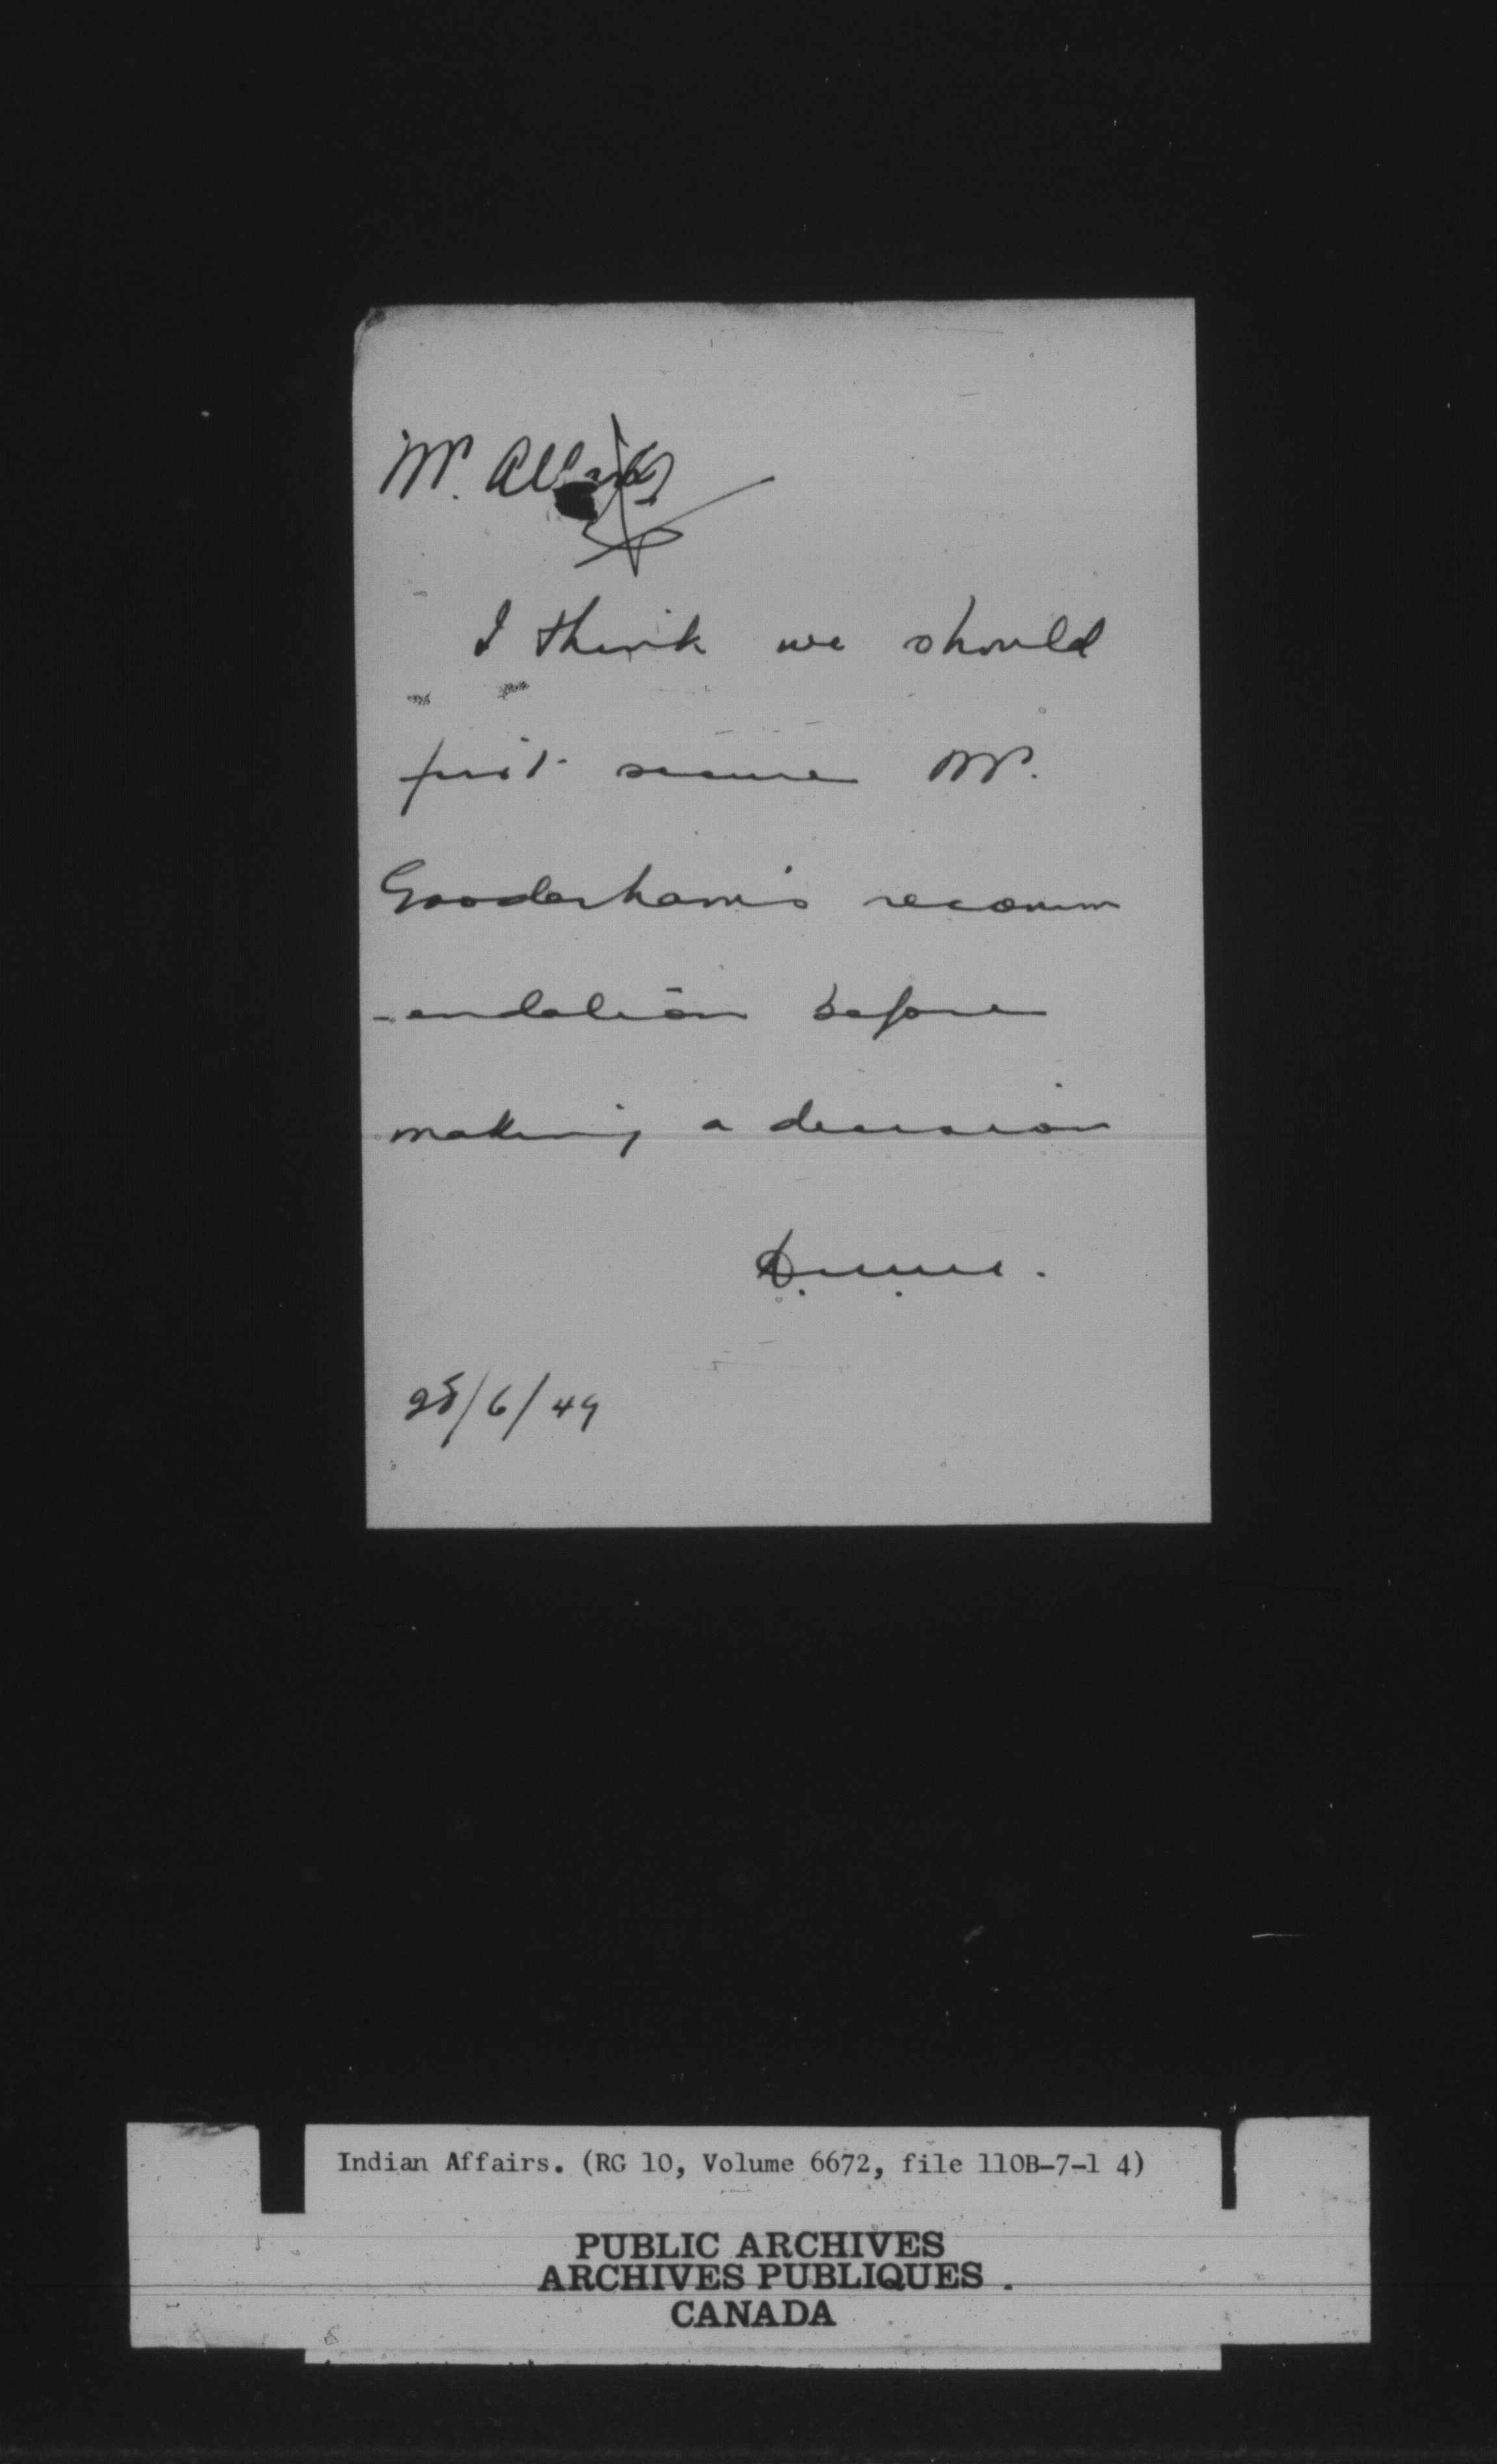 Mr.
I think we should
first secure Mr.
Gooderham's recomm
-endation before
making a decision
28/6/49
Indian Affairs. (RG 10, Volume 6672, file 110B-7-1 4)
PUBLIC ARCHIVES
ARCHIVES PUBLIQUES
CANADA